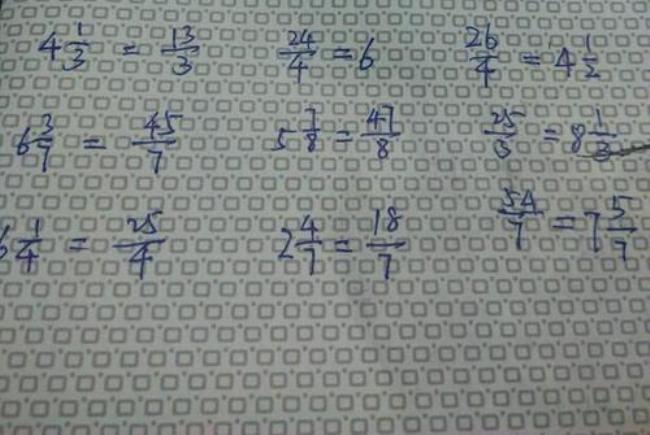 4 1/3 = 13/3  24/4 = 6  26/4 = 4 1/2
6 3/7 = 45/7  5 7/8 = 47/8  25/3 = 8 1/3
6 1/4 = 25/4  2 4/7 = 18/7  54/7 = 7 5/7